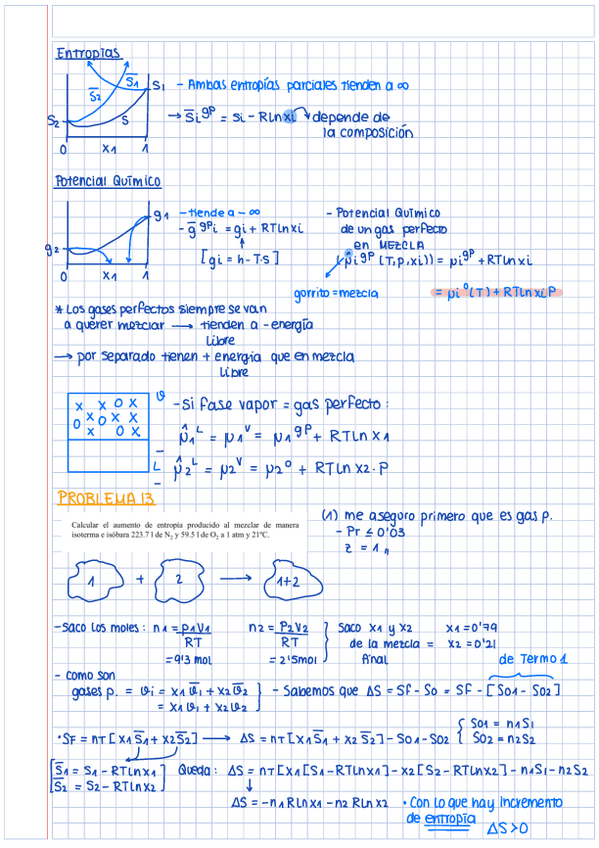 Entropías
S̄1
S1
S̄2
S2
S
0 x1 1
- Ambas entropías parciales tienden a ∞
→ S̄i^gp = si - RLnxi → depende de
la composición
Potencial Químico
g1
g2
0 x1 1
- tiende a -∞
- ḡ^gp i = gi + RTLnxi
[gi = h-T·s]
- Potencial Químico
de un gas perfecto
en MEZCLA
μ̂i^gp (T,p,xi)) = μi^gp + RTLnxi
gorrito = mezcla
= μi^0(T) + RTLnxiP
* Los gases perfectos siempre se van
a querer mezclar → tienden a - energía
libre
→ por separado tienen + energía que en mezcla
libre
x x o x
o x o x x
x o x
L
- si fase vapor = gas perfecto:
μ̂1^L = μ1^V = μ1^gp + RTLn x1
μ̂2^L = μ2^V = μ2^0 + RTLn x2·P
PROBLEMA 13
Calcular el aumento de entropía producido al mezclar de manera
isoterma e isóbara 223.7 l de N2 y 59.5 l de O2 a 1 atm y 21ºC.
(1) me aseguro primero que es gas p.
- Pr ≤ 0'03
z = 1 "
1 + 2 → 1+2
- Saco los moles: n1 = p1V1/RT n2 = P2V2/RT
= 9'3 mol = 2'5mol
Saco x1 y x2 x1 = 0'79
de la mezcla = x2 = 0'21
final
de Termo 1
- como son
gases p. = vi = x1 v̄1 + x2 v̄2
= x1v1 + x2v2
- Sabemos que ΔS = Sf - So = SF - [So1 - So2]
· SF = nT [x1 S̄1 + x2 S̄2] → ΔS = nT [x1 S̄1 + x2 S̄2] - So1 - So2
So1 = n1S1
So2 = n2S2
[S̄1 = S1 - RTLnx1]
[S̄2 = S2 - RTLnx2]
Queda: ΔS = nT [x1 [S1 - RTLnx1] - x2 [S2 - RTLnx2] - n1S1 - n2S2
ΔS = -n1 RLnx1 - n2 RLnx2
· Con lo que hay incremento
de entropía
ΔS>0